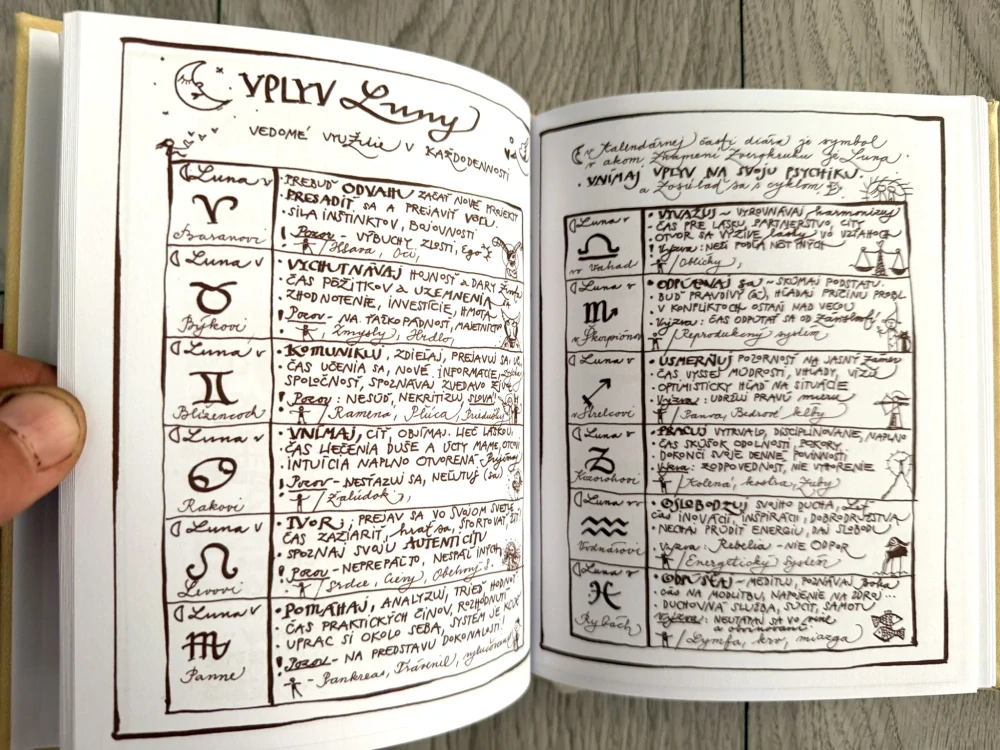 VPLYV Luny
VEDOMÉ VYUŽITIE V KAŽDODENNOSTI
Luna v
Baranovi
• PREBUĎ ODVAHU ZAČAŤ NOVÉ PROJEKTY
PRESADIŤ SA A PREJAVIŤ VÔĽU.
• SILA INŠTINKTOV, BOJOVNOSTI
! Pozor - VÝBUCHY, ZLOSTI, Ego
/ Hlava, Oči,
Luna v
Býkovi
• VYCHUTNÁVAJ HOJNOSŤ a DARY Života
ČAS PÔŽITKOV a UZEMNENIA
• ZHODNOTENIE, INVESTÍCIE, HMOTA
! Pozor - NA ŤAŽKOPÁDNOSŤ, MAJETNÍCTVO
/ Zmysly, Hrdlo,
Luna v
Blížencoch
• KOMUNIKUJ, ZDIEĽAJ, PREJAVUJ SA,
• ČAS UČENIA SA, NOVÉ INFORMÁCIE,
SPOLOČNOSŤ, SPOZNÁVAJ ZVEDAVO
! Pozor: NESÚĎ, NEKRITIZUJ, SLOVÁ!
/ Ramená, Pľúca, Priedušky
Luna v
Rakovi
• VNÍMAJ, CÍŤ, OBJÍMAJ. LIEČ LÁSKOU,
ČAS LIEČENIA DUŠE A ÚCTY MAME, OTCOVI
• INTUÍCIA NAPLNO OTVORENÁ - Prijímaj
! Pozor - NESŤAŽUJ SA, NEĽUTUJ (sa)
/ Žalúdok,
Luna v
Levovi
• TVOR, PREJAV SA VO SVOJOM SVETLE
ČAS ZAŽIARIŤ, hrať sa, ŠPORTOVAŤ, ŽIŤ!
• SPOZNAJ SVOJU AUTENTICITU
! Pozor - NEPREPÁĽ TO, NESPÁĽ INÝCH
/ Srdce, Cievy, Obehový s.
Luna v
Panne
• POMÁHAJ, ANALYZUJ, TRIEĎ, HODNOŤ
• ČAS PRAKTICKÝCH ČINOV, ROZHODNUTÍ
• UPRAC SI OKOLO SEBA, SYSTÉM JE
! Pozor - NA PREDSTAVU DOKONALOSTI!
- Pankreas, Trávenie, vylučovanie
v Kalendárnej časti diára je symbol
v akom Znamení Zverokruhu je Luna.
• VNÍMAJ VPLYV NA SVOJU PSYCHIKU.
a Zosúlaď sa s cyklom
Luna v
vo Váhach
• VYVAŽUJ ~ VYROVNÁVAJ harmonizuj
• ČAS PRE LÁSKU, PARTNERSTVO, CITY
OTVOR SA VÝŽIVE lásky VO VZŤAHOCH
• Výzva: NEŽI PODĽA NÔT INÝCH
/ Obličky,
Luna v
v Škorpiónovi
• ODPÚTAVAJ sa ~ SKÚMAJ PODSTATU.
• BUĎ PRAVDIVÝ (á), HĽADAJ PRÍČINU PROBL.
V KONFLIKTOCH OSTAŇ NAD VECOU
• Výzva: ČAS ODPÚTAŤ SA OD Závislostí!
/ Reprodukčný systém
Luna v
v Strelcovi
• USMERŇUJ POZORNOSŤ NA JASNÝ Zámer
ČAS VYŠŠEJ MÚDROSTI, VHĽADY, VÍZIE
• OPTIMISTICKÝ HĽAD NA SITUÁCIE
• Výzva: UDRŽUJ PRAVÚ mieru
/ Panva, Bedrové kĺby
Luna v
Kozorohovi
• PRACUJ VYTRVALO, DISCIPLINOVANE, NAPLNO
• ČAS SKÚŠOK ODOLNOSTI, POKORY.
DOKONČI SVOJE DENNÉ POVINNOSTI
• Výzva: ZODPOVEDNOSŤ, NIE VYHORENIE
/ Kolená, kostra, Zuby
Luna vo
Vodnárovi
• OSLOBODZUJ SVOJHO DUCHA, Leť
ČAS INOVÁCIÍ, INŠPIRÁCIÍ, DOBRODRUŽSTVA
• NECHAJ PRÚDIŤ ENERGIU, DAJ SLOBODU
• Výzva: Rebélia - NIE ODPOR
/ Energetický Systém
Luna v
Rybách
• ODPÚŠŤAJ ~ MEDITUJ, POZNÁVAJ Boha
ČAS NA MODLITBU, NAPOJENIE NA ZDROJ...
• DUCHOVNÁ SLUŽBA, SÚCIT, SAMOTU
• Výzva: NEUTÁPAJ SA VO vine
a obviňovaní
/ Lymfa, krv, miazga